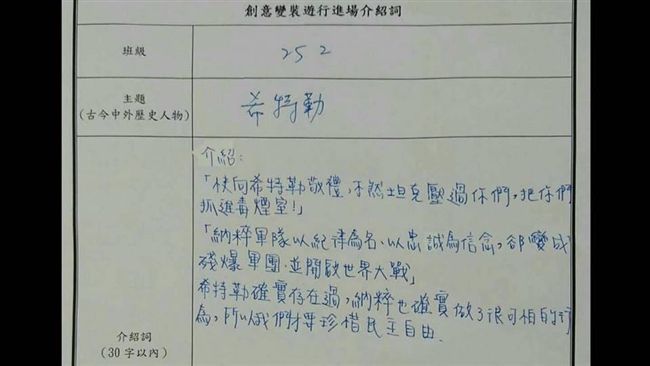 創意變裝遊行進場介紹詞
班級
252
主題
(古今中外歷史人物)
希特勒
介紹:
「快向希特勒敬禮,不然坦克壓過你們,把你們
抓進毒煙室!」
「納粹軍隊以紀律為名、以忠誠為信念,卻變成
殘爆軍團,並開啟世界大戰」
希特勒確實存在過,納粹也確實做了很可怕的行
為,所以我們才要珍惜民主自由.
介紹詞
(30字以內)